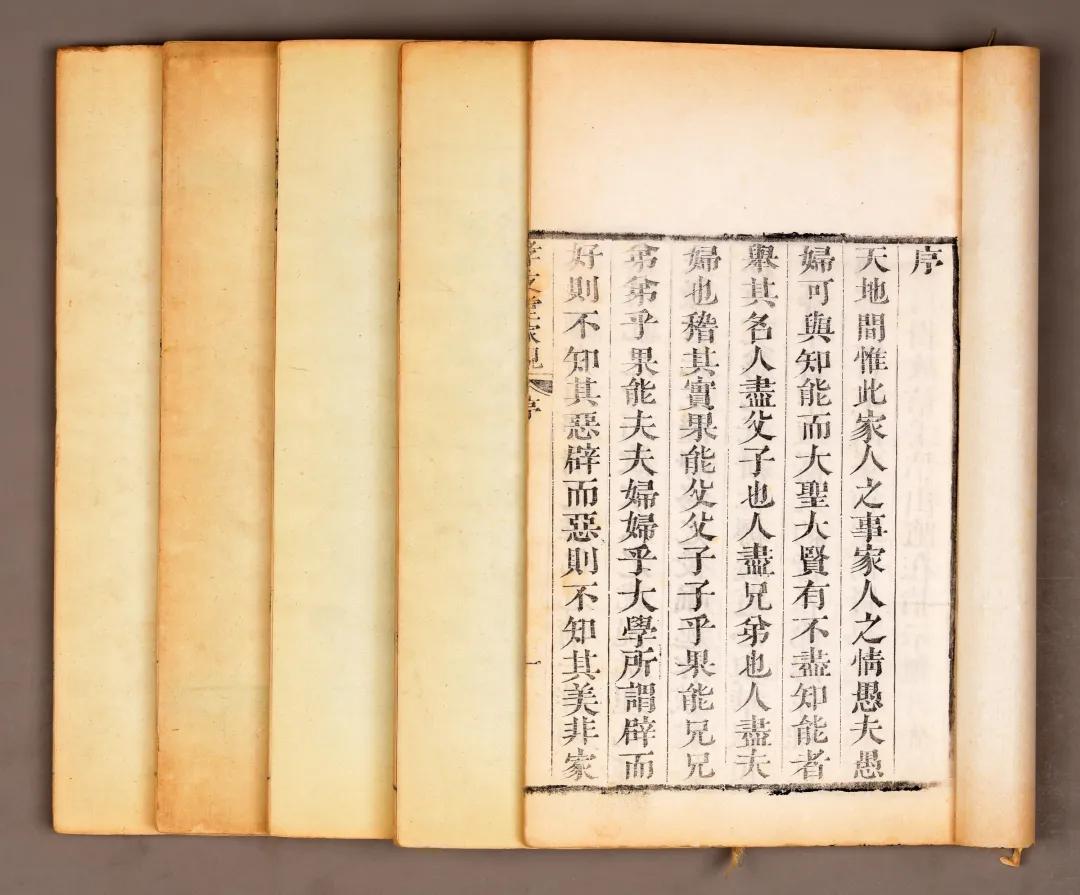 序
天地間惟此家人之事家人之情愚夫愚
婦可與知能而大聖大賢有不盡知能者
舉其名人盡父子也人盡兄弟也人盡夫
婦也稽其實果能父父子子乎果能兄兄
弟弟乎果能夫夫婦婦乎大學所謂辟而
好則不知其惡辟而惡則不知其美非家
孝友堂家規
序
一